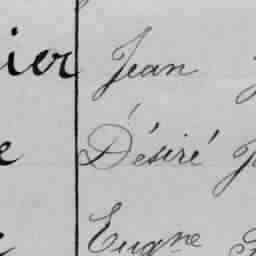 ier Jean
e Désiré
Eugne